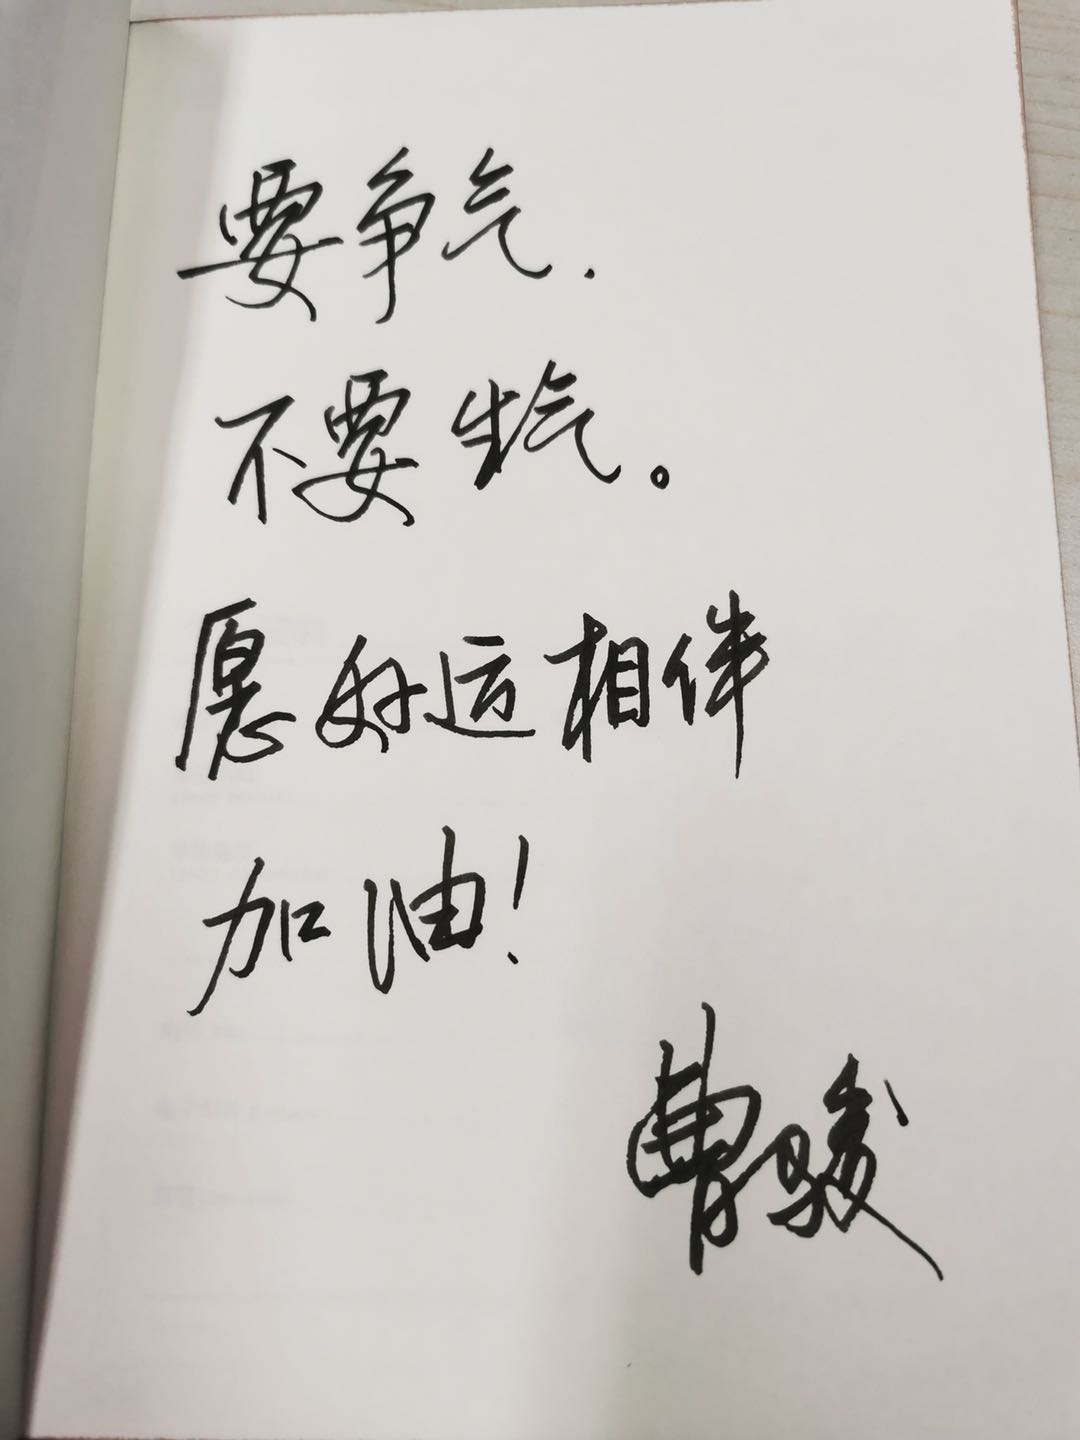 要争气.
不要生气。
愿好运相伴
加油!
曹骏